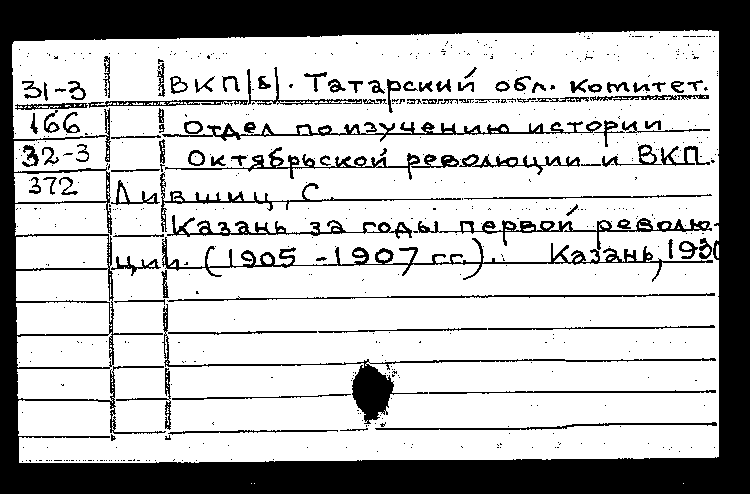 31-3 ВКП/б/. Татарский обл. комитет.
166 Отдел по изучению истории
32-3 Октябрьской революции и ВКП.
372 Лившиц, С.
Казань за годы первой револю-
ции. (1905 -1907 гг.). Казань, 1930